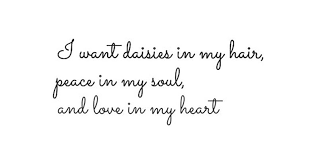 I want daisies in my hair,
peace in my soul,
and love in my heart